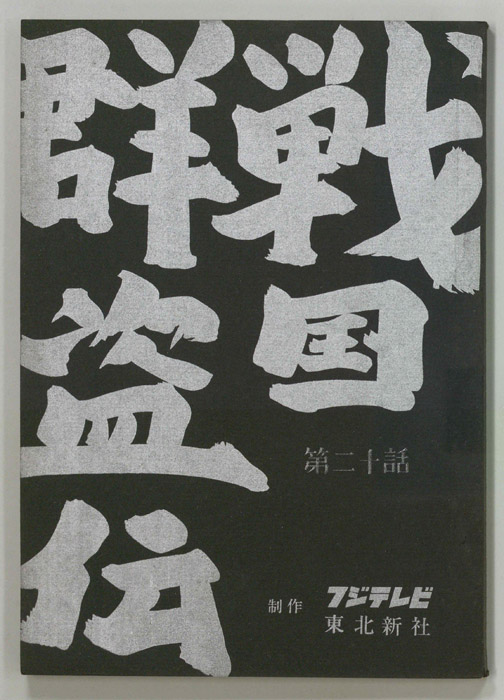 戦国
群盗伝
第二十話
制作 フジテレビ
東北新社